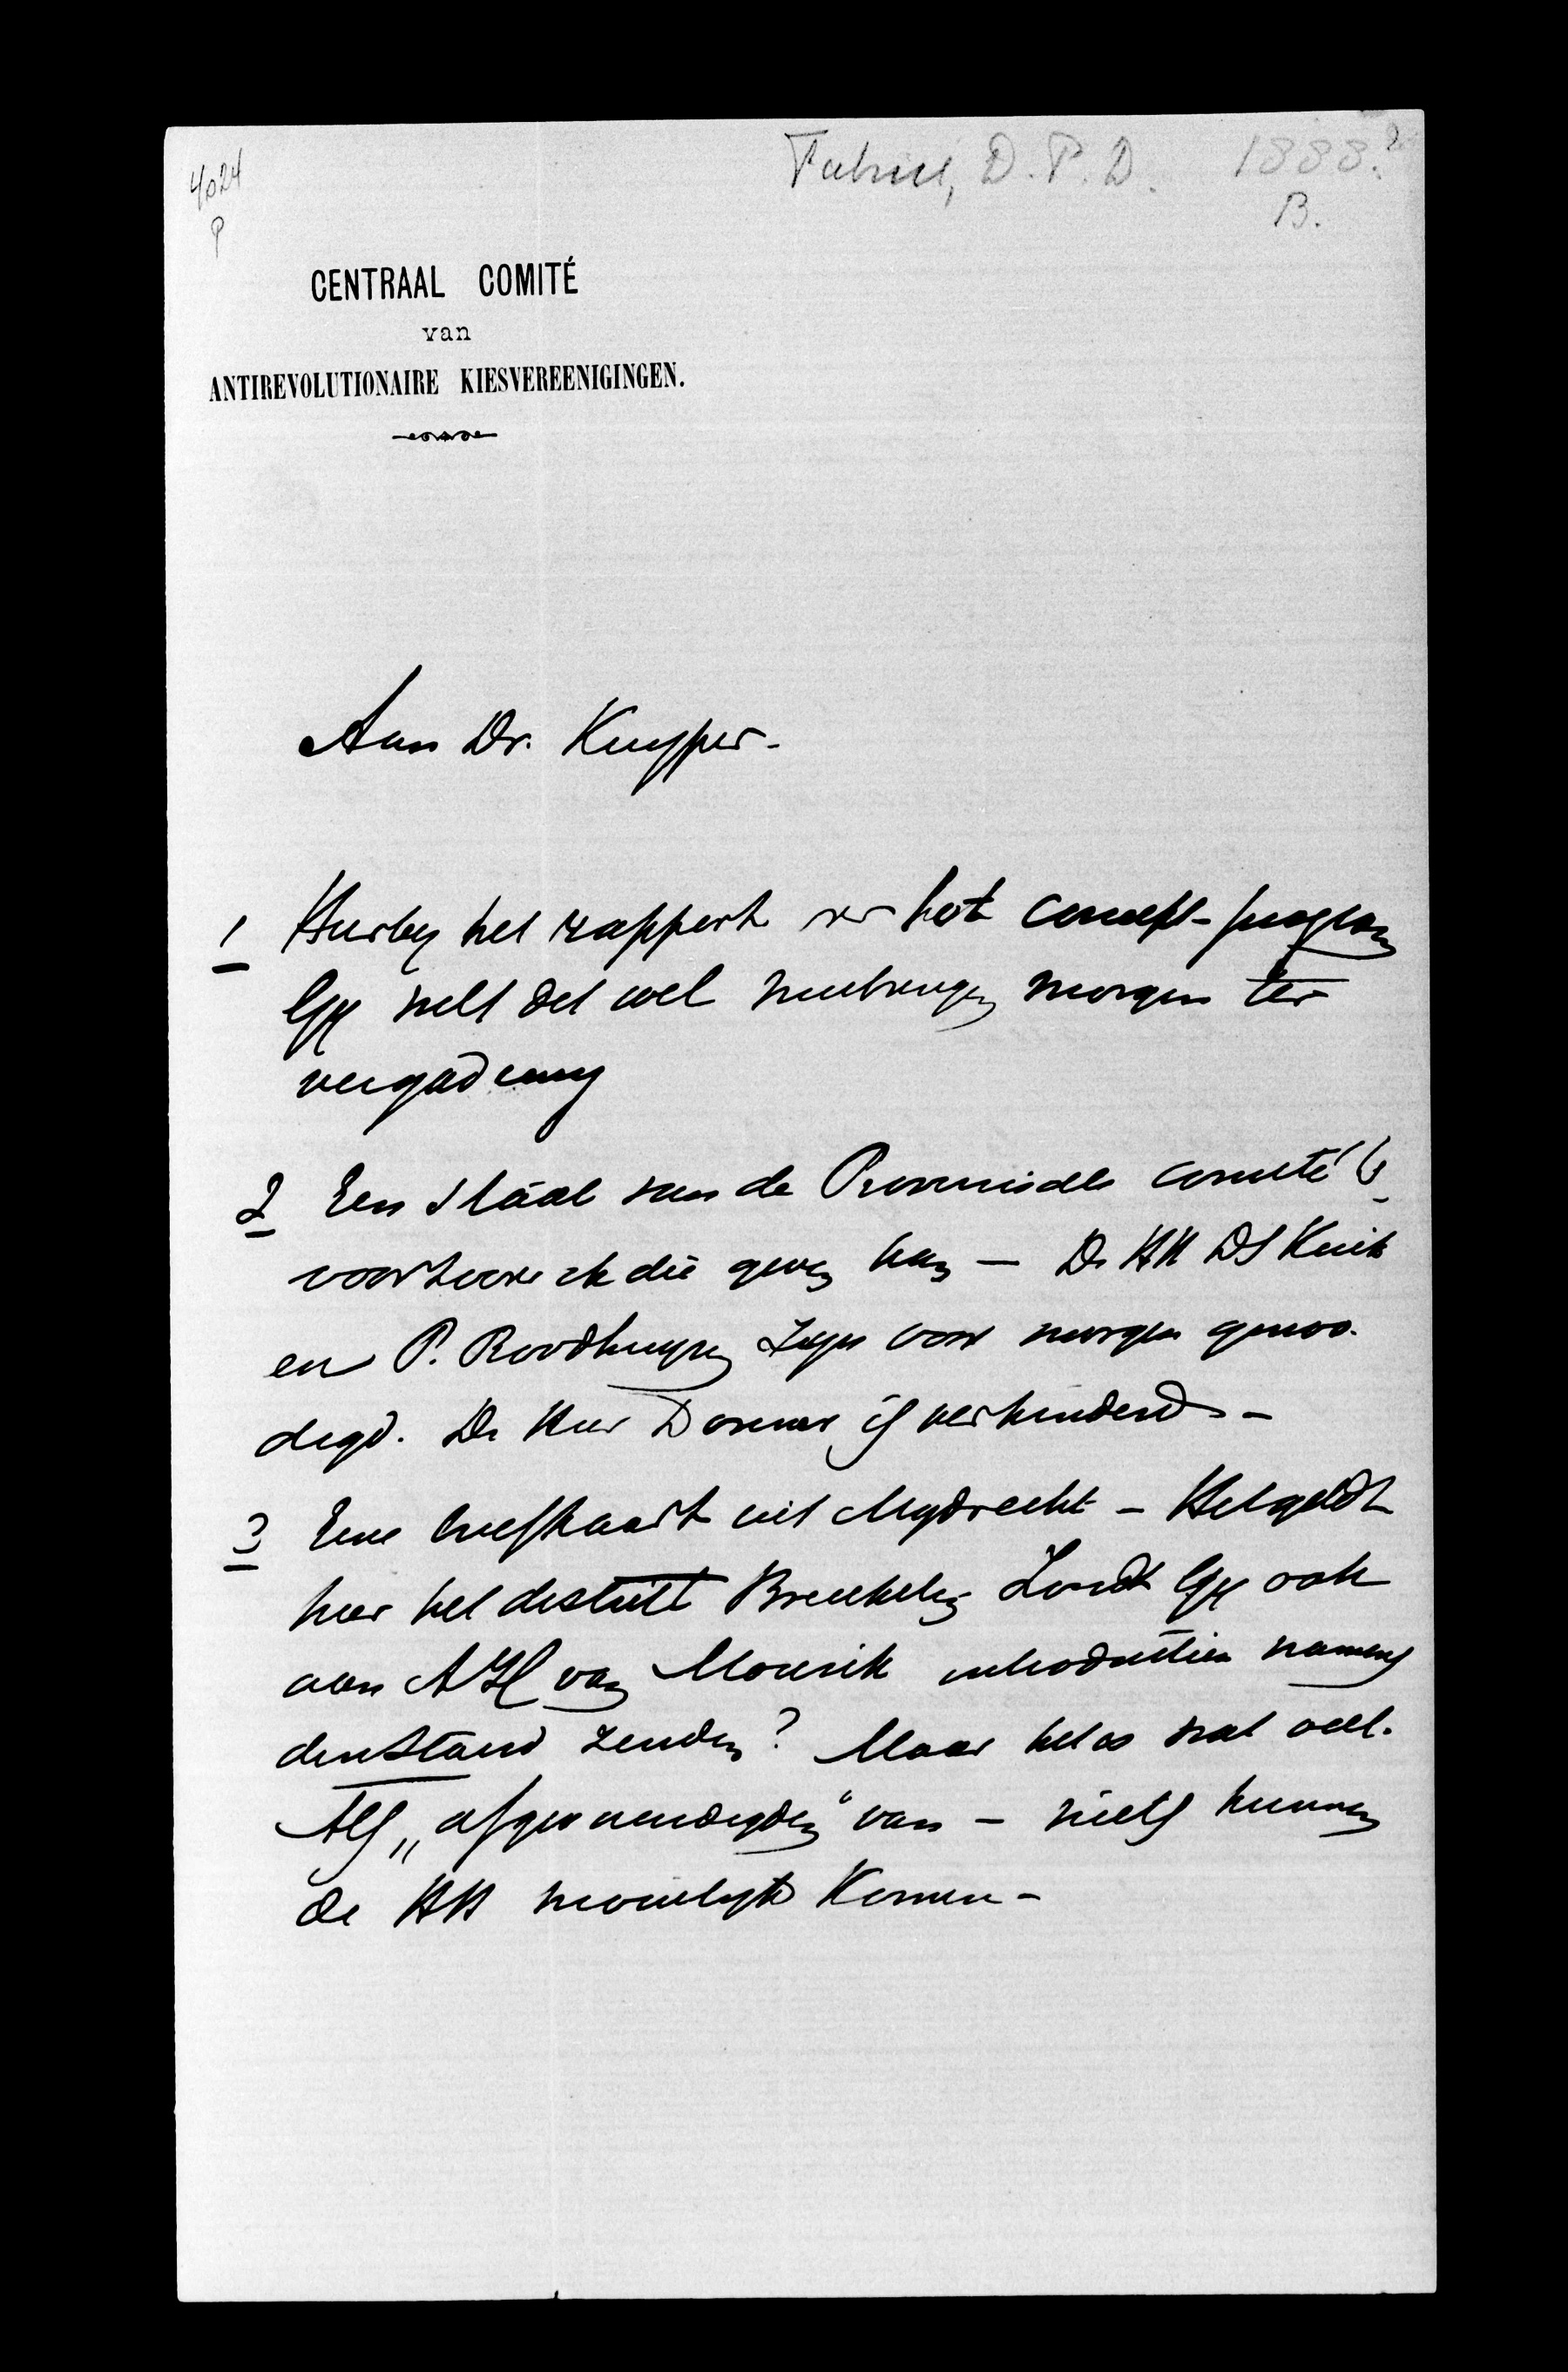 4024
P
Fabius, D. P. D. 1888?
B.
CENTRAAL COMITÉ
van
ANTIREVOLUTIONAIRE KIESVEREENIGINGEN.
Aan Dr. Kuyper.
1 Hierbij het rapport het concept-program
Gij zult dit wel meebrengen morgen ter
vergadering
2 Een staat van de Provinciale comité's
voorzoover ik die geven kan — De HH DS Kuik
en P. Roodhuyzen zijn voor morgen genoo-
digd. De Heer is verhinderd —
3 Eene briefkaart uit Mydrecht — Het geldt
hier het district Breukelen Zoudt Gij ook
aan van Mourik introductien
zenden? Maar het is wat veel.
Als „afgevaardigden" van — niets kunnen
de HH moeielijk komen —